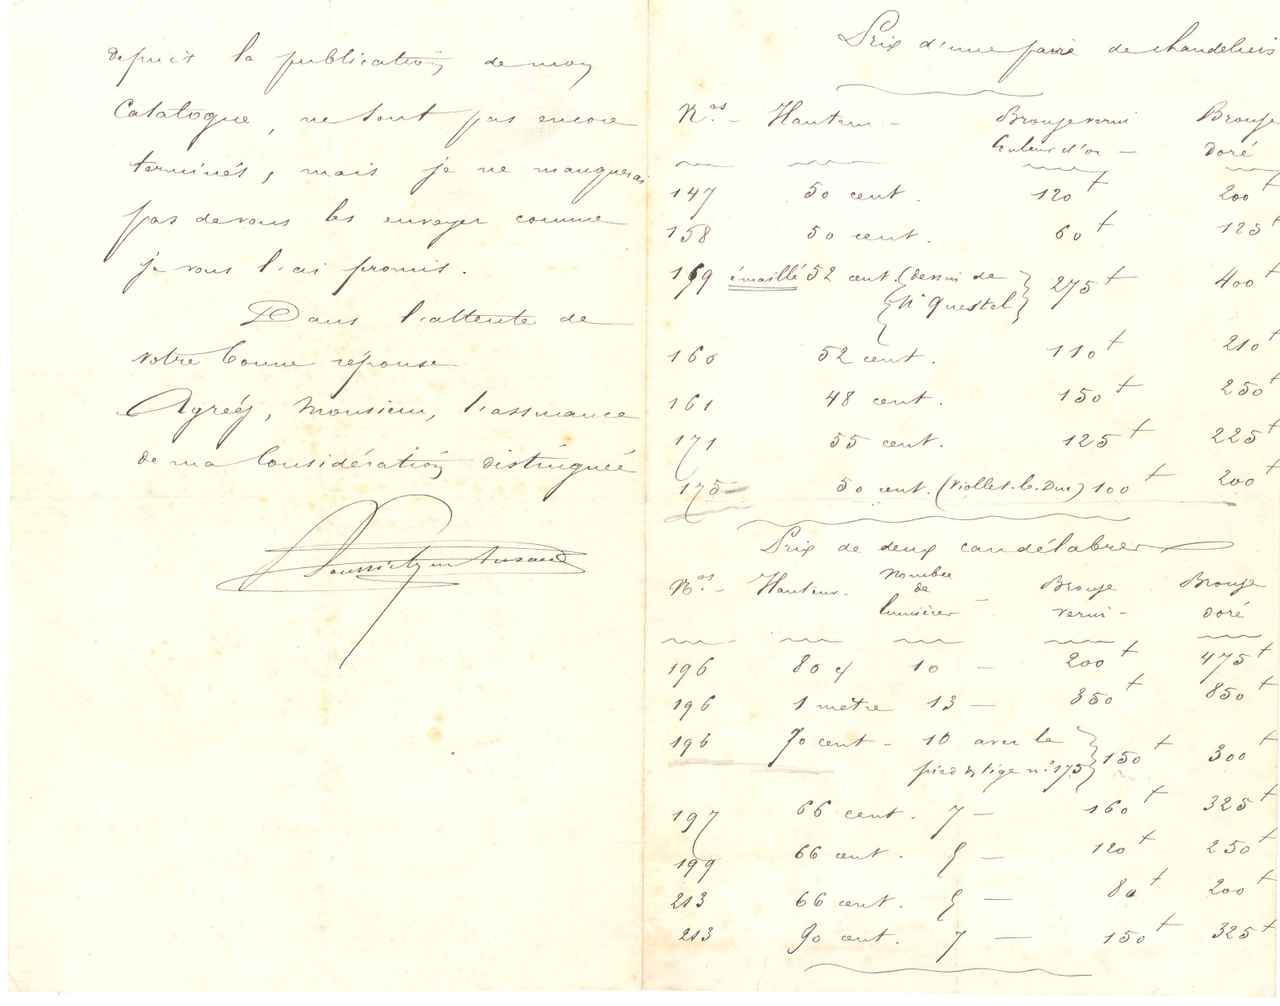 depuis la publication de mon
Catalogue, ne sont pas encore
terminés, mais je ne manquerai
pas de vous les envoyer comme
je vous l'ai promis.
Dans l'attente de
votre bonne réponse
Agréez, Monsieur, l'assurance
de ma Considération distinguée
Poussielgue Rusand
Prix d'une paire de chandeliers
Nos Hauteur Bronze verni Couleur d'or Bronze Doré
147 50 cent. 120f 200f
158 50 cent. 60f 125f
169 émaillé 52 cent. (dessin de Mr Questel) 275f 400f
160 52 cent. 110f 210f
161 48 cent. 150f 250f
171 55 cent. 125f 225f
175 50 cent. (Viollet-le-Duc) 100f 200f
Prix de deux candélabres
Nos Hauteur Nombre de lumières Bronze verni Bronze doré
196 80 c 10 200f 475f
196 1 mètre 13 350f 850f
196 70 cent 10 avec le pied & tige no 175 150f 300f
197 66 cent. 7 160f 325f
199 66 cent. 120f 250f
213 66 cent. 80f 200f
213 90 cent. 7 150f 325f